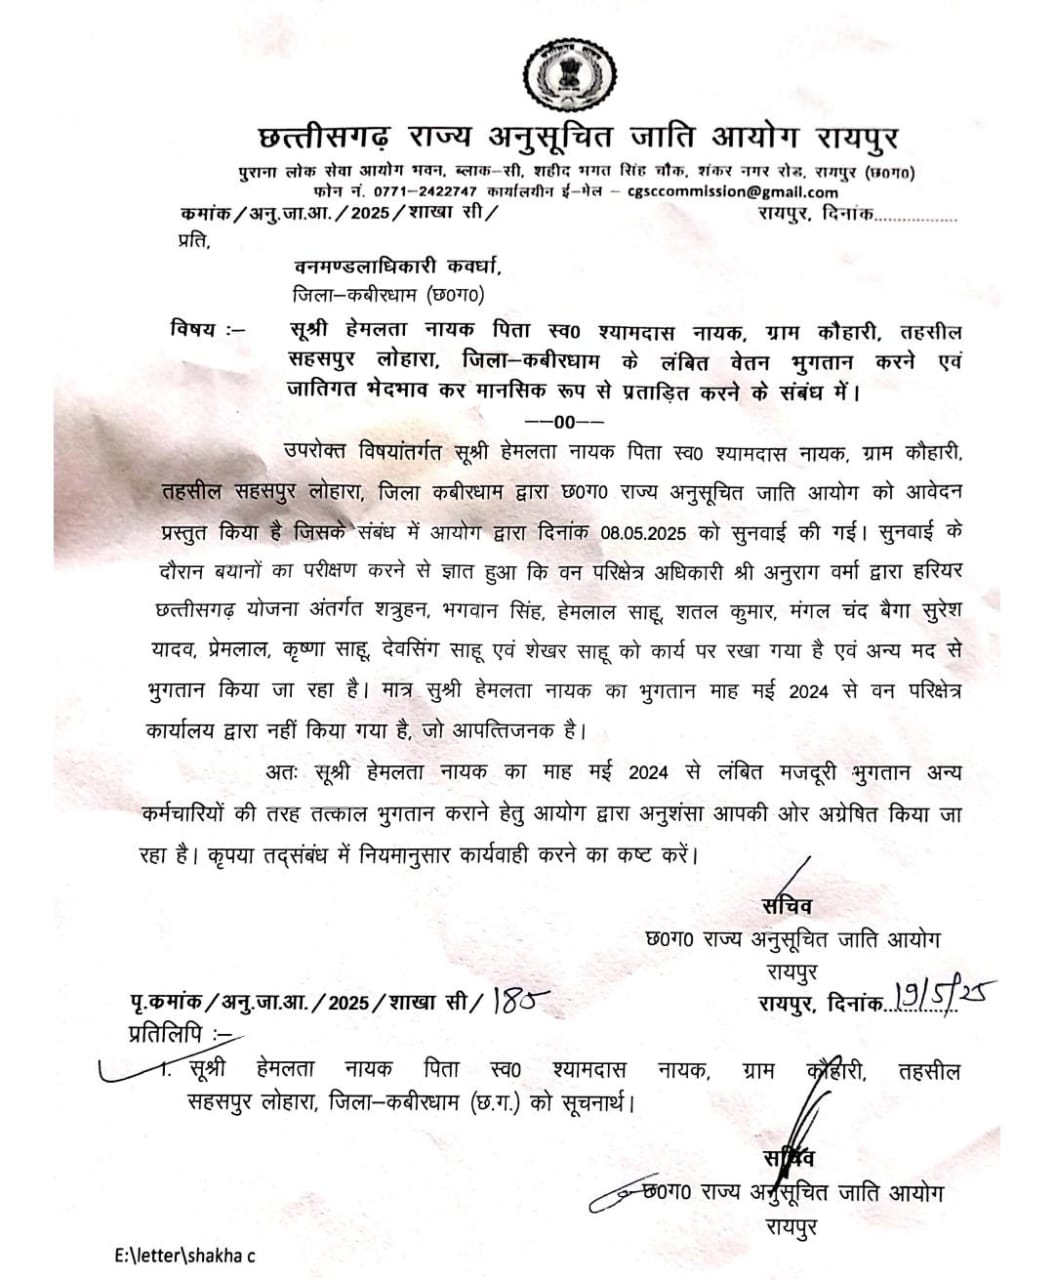 छत्तीसगढ़ राज्य अनुसूचित जाति आयोग रायपुर
पुराना लोक सेवा आयोग भवन, ब्लाक–सी, शहीद भगत सिंह चौक, शंकर नगर रोड, रायपुर (छ0ग0)
फोन नं. 0771-2422747 कार्यालयीन ई–मेल – cgsccommission@gmail.com
कमांक/अनु.जा.आ./2025/शाखा सी/ रायपुर, दिनांक..................
प्रति,
वनमण्डलाधिकारी कवर्धा,
जिला–कबीरधाम (छ0ग0)
विषय :– सूश्री हेमलता नायक पिता स्व0 श्यामदास नायक, ग्राम कौहारी, तहसील
सहसपुर लोहारा, जिला–कबीरधाम के लंबित वेतन भुगतान करने एवं
जातिगत भेदभाव कर मानसिक रूप से प्रताड़ित करने के संबंध में।
––00––
उपरोक्त विषयांतर्गत सूश्री हेमलता नायक पिता स्व0 श्यामदास नायक, ग्राम कौहारी,
तहसील सहसपुर लोहारा, जिला कबीरधाम द्वारा छ0ग0 राज्य अनुसूचित जाति आयोग को आवेदन
प्रस्तुत किया है जिसके संबंध में आयोग द्वारा दिनांक 08.05.2025 को सुनवाई की गई। सुनवाई के
दौरान बयानों का परीक्षण करने से ज्ञात हुआ कि वन परिक्षेत्र अधिकारी श्री अनुराग वर्मा द्वारा हरियर
छत्तीसगढ़ योजना अंतर्गत शत्रुहन, भगवान सिंह, हेमलाल साहू, शतल कुमार, मंगल चंद बैगा सुरेश
यादव, प्रेमलाल, कृष्णा साहू, देवसिंग साहू एवं शेखर साहू को कार्य पर रखा गया है एवं अन्य मद से
भुगतान किया जा रहा है। मात्र सुश्री हेमलता नायक का भुगतान माह मई 2024 से वन परिक्षेत्र
कार्यालय द्वारा नहीं किया गया है, जो आपत्तिजनक है।
अतः सूश्री हेमलता नायक का माह मई 2024 से लंबित मजदूरी भुगतान अन्य
कर्मचारियों की तरह तत्काल भुगतान कराने हेतु आयोग द्वारा अनुशंसा आपकी ओर अग्रेषित किया जा
रहा है। कृपया तद्संबंध में नियमानुसार कार्यवाही करने का कष्ट करें।
सचिव
छ0ग0 राज्य अनुसूचित जाति आयोग
रायपुर
पृ.कमांक/अनु.जा.आ./2025/शाखा सी/ 180 रायपुर, दिनांक..19/5/25
प्रतिलिपि :–
1. सूश्री हेमलता नायक पिता स्व0 श्यामदास नायक, ग्राम कौहारी, तहसील
सहसपुर लोहारा, जिला–कबीरधाम (छ.ग.) को सूचनार्थ।
सचिव
छ0ग0 राज्य अनुसूचित जाति आयोग
रायपुर
E:\letter\shakha c